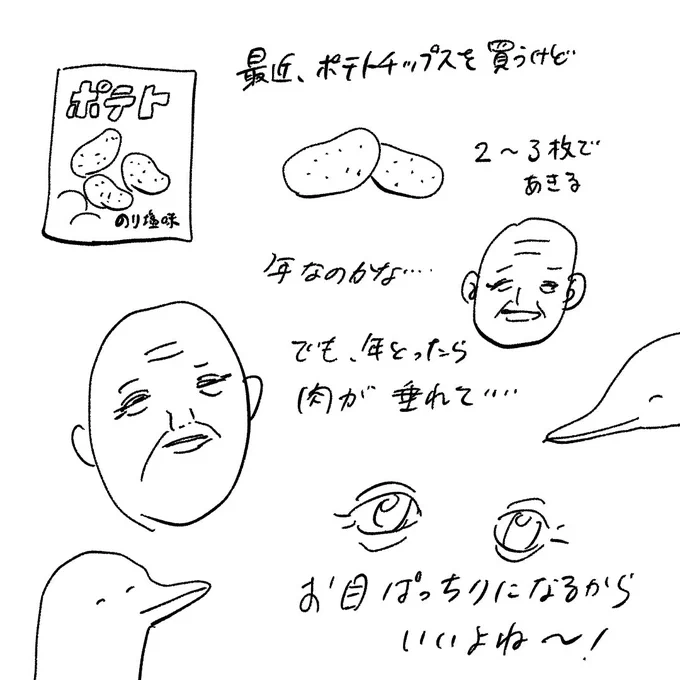 最近、ポテトチップスを買うけど
ポテト
のり塩味
2〜3枚で
あきる
年なのかな…
でも、年とったら
肉が垂れて‥‥
お目ぱっちりになるから
いいよね〜!